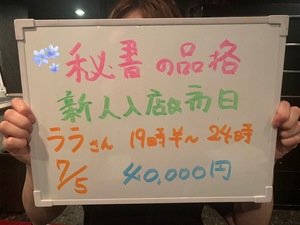 秘書の品格
新人入店 日
ララさん 19時半~24時
7/5 40,000円